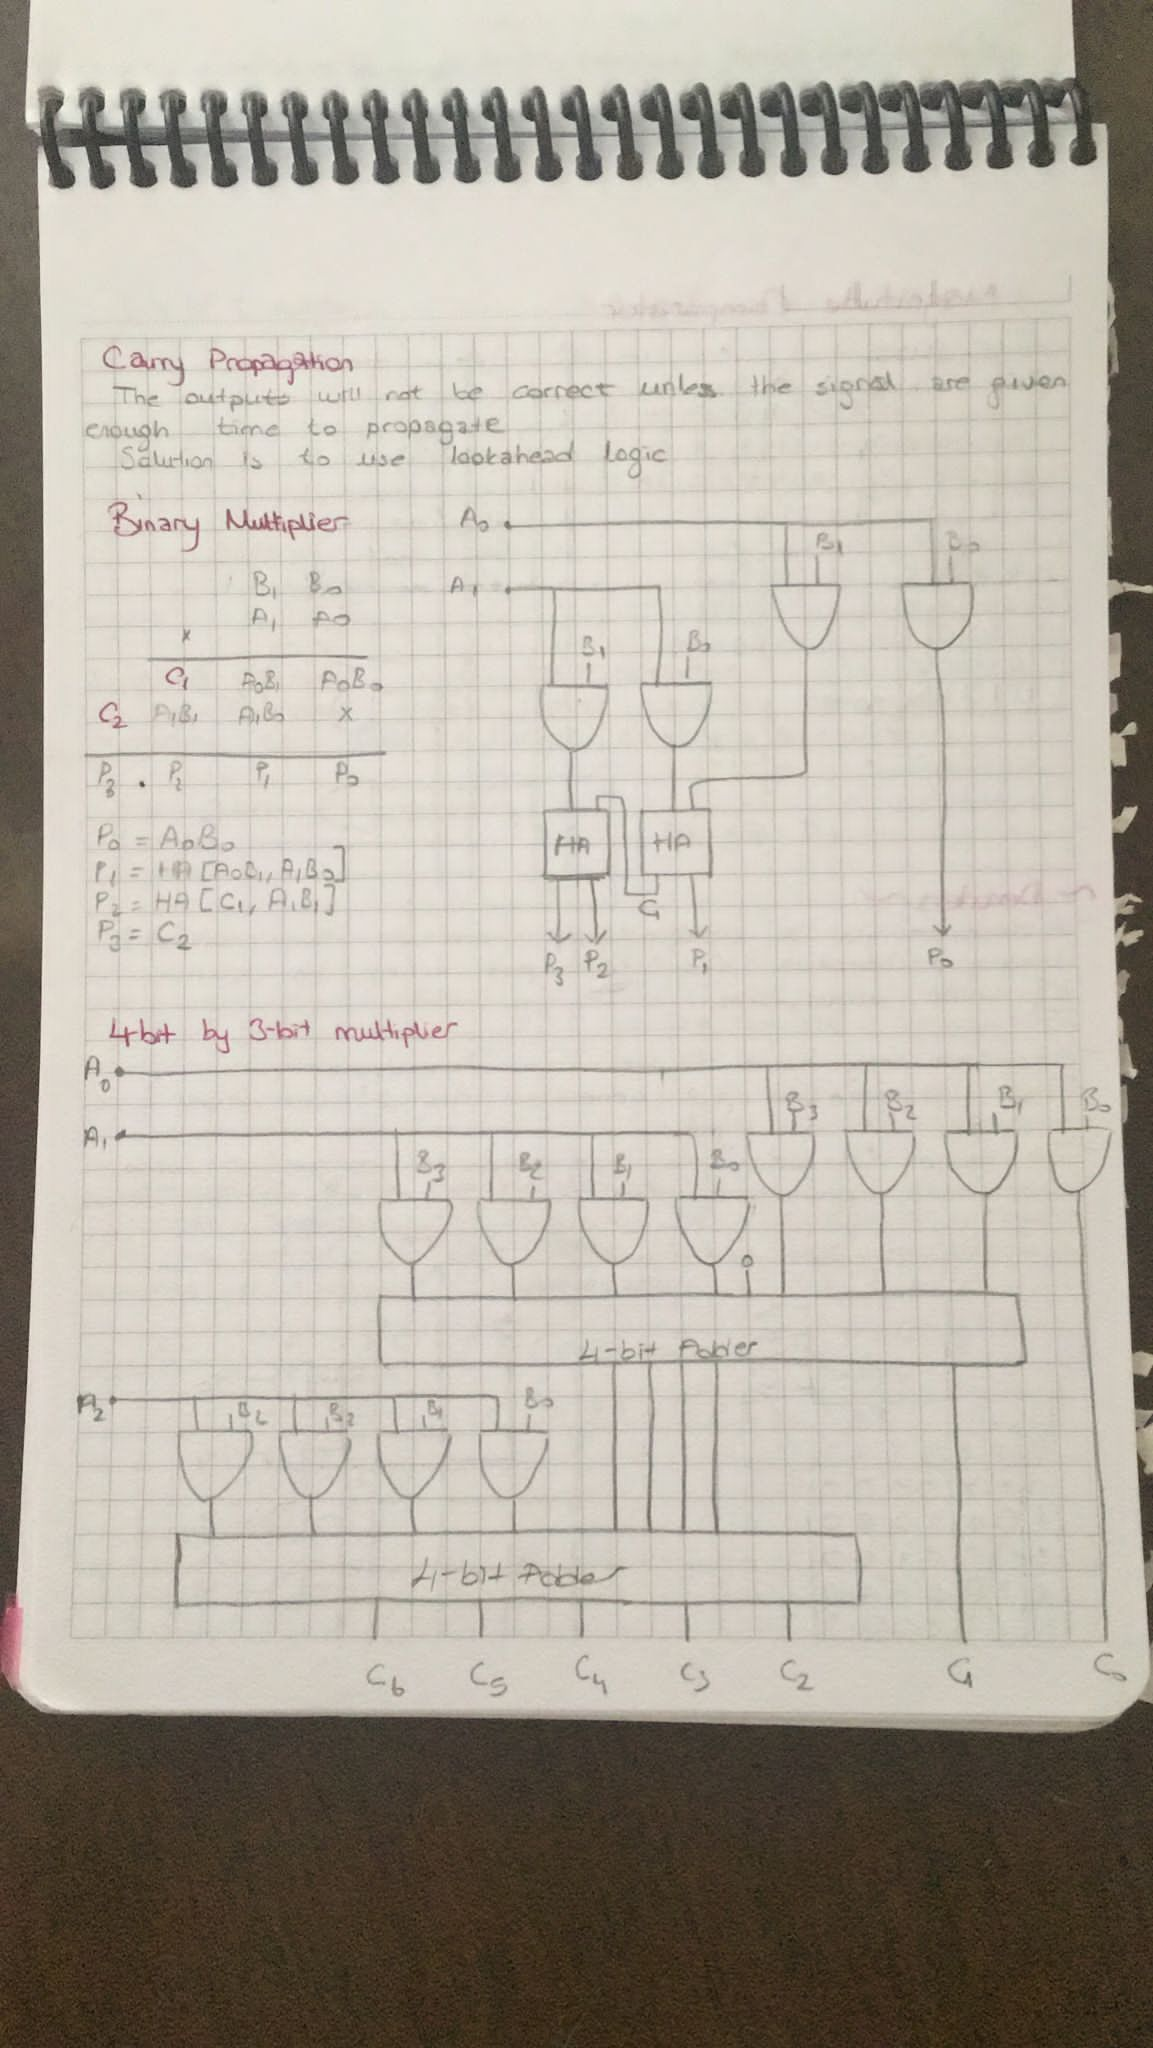 Carry Propagation
The outputs will not be correct unless the signal are given
enough time to propagate
Solution is to use lookahead logic
Binary Multiplier
B₁ B₀
A₁ A₀
x
C₁ A₀B₁ A₀B₀
C₂ A₁B₁ A₁B₀ x
P₃ . P₂ P₁ P₀
P₀ = A₀B₀
P₁ = HA [A₀B₁, A₁B₀]
P₂ = HA [C₁, A₁B₁]
P₃ = C₂
A₀
B₁ B₀
A₁
B₁ B₀
HA HA
C₁
P₃ P₂ P₁ P₀
4-bit by 3-bit multiplier
A₀
B₃ B₂ B₁ B₀
A₁
B₃ B₂ B₁ B₀
0
4-bit Adder
A₂
B₂ B₁ B₀
4-bit Adder
C₆ C₅ C₄ C₃ C₂ C₁ C₀